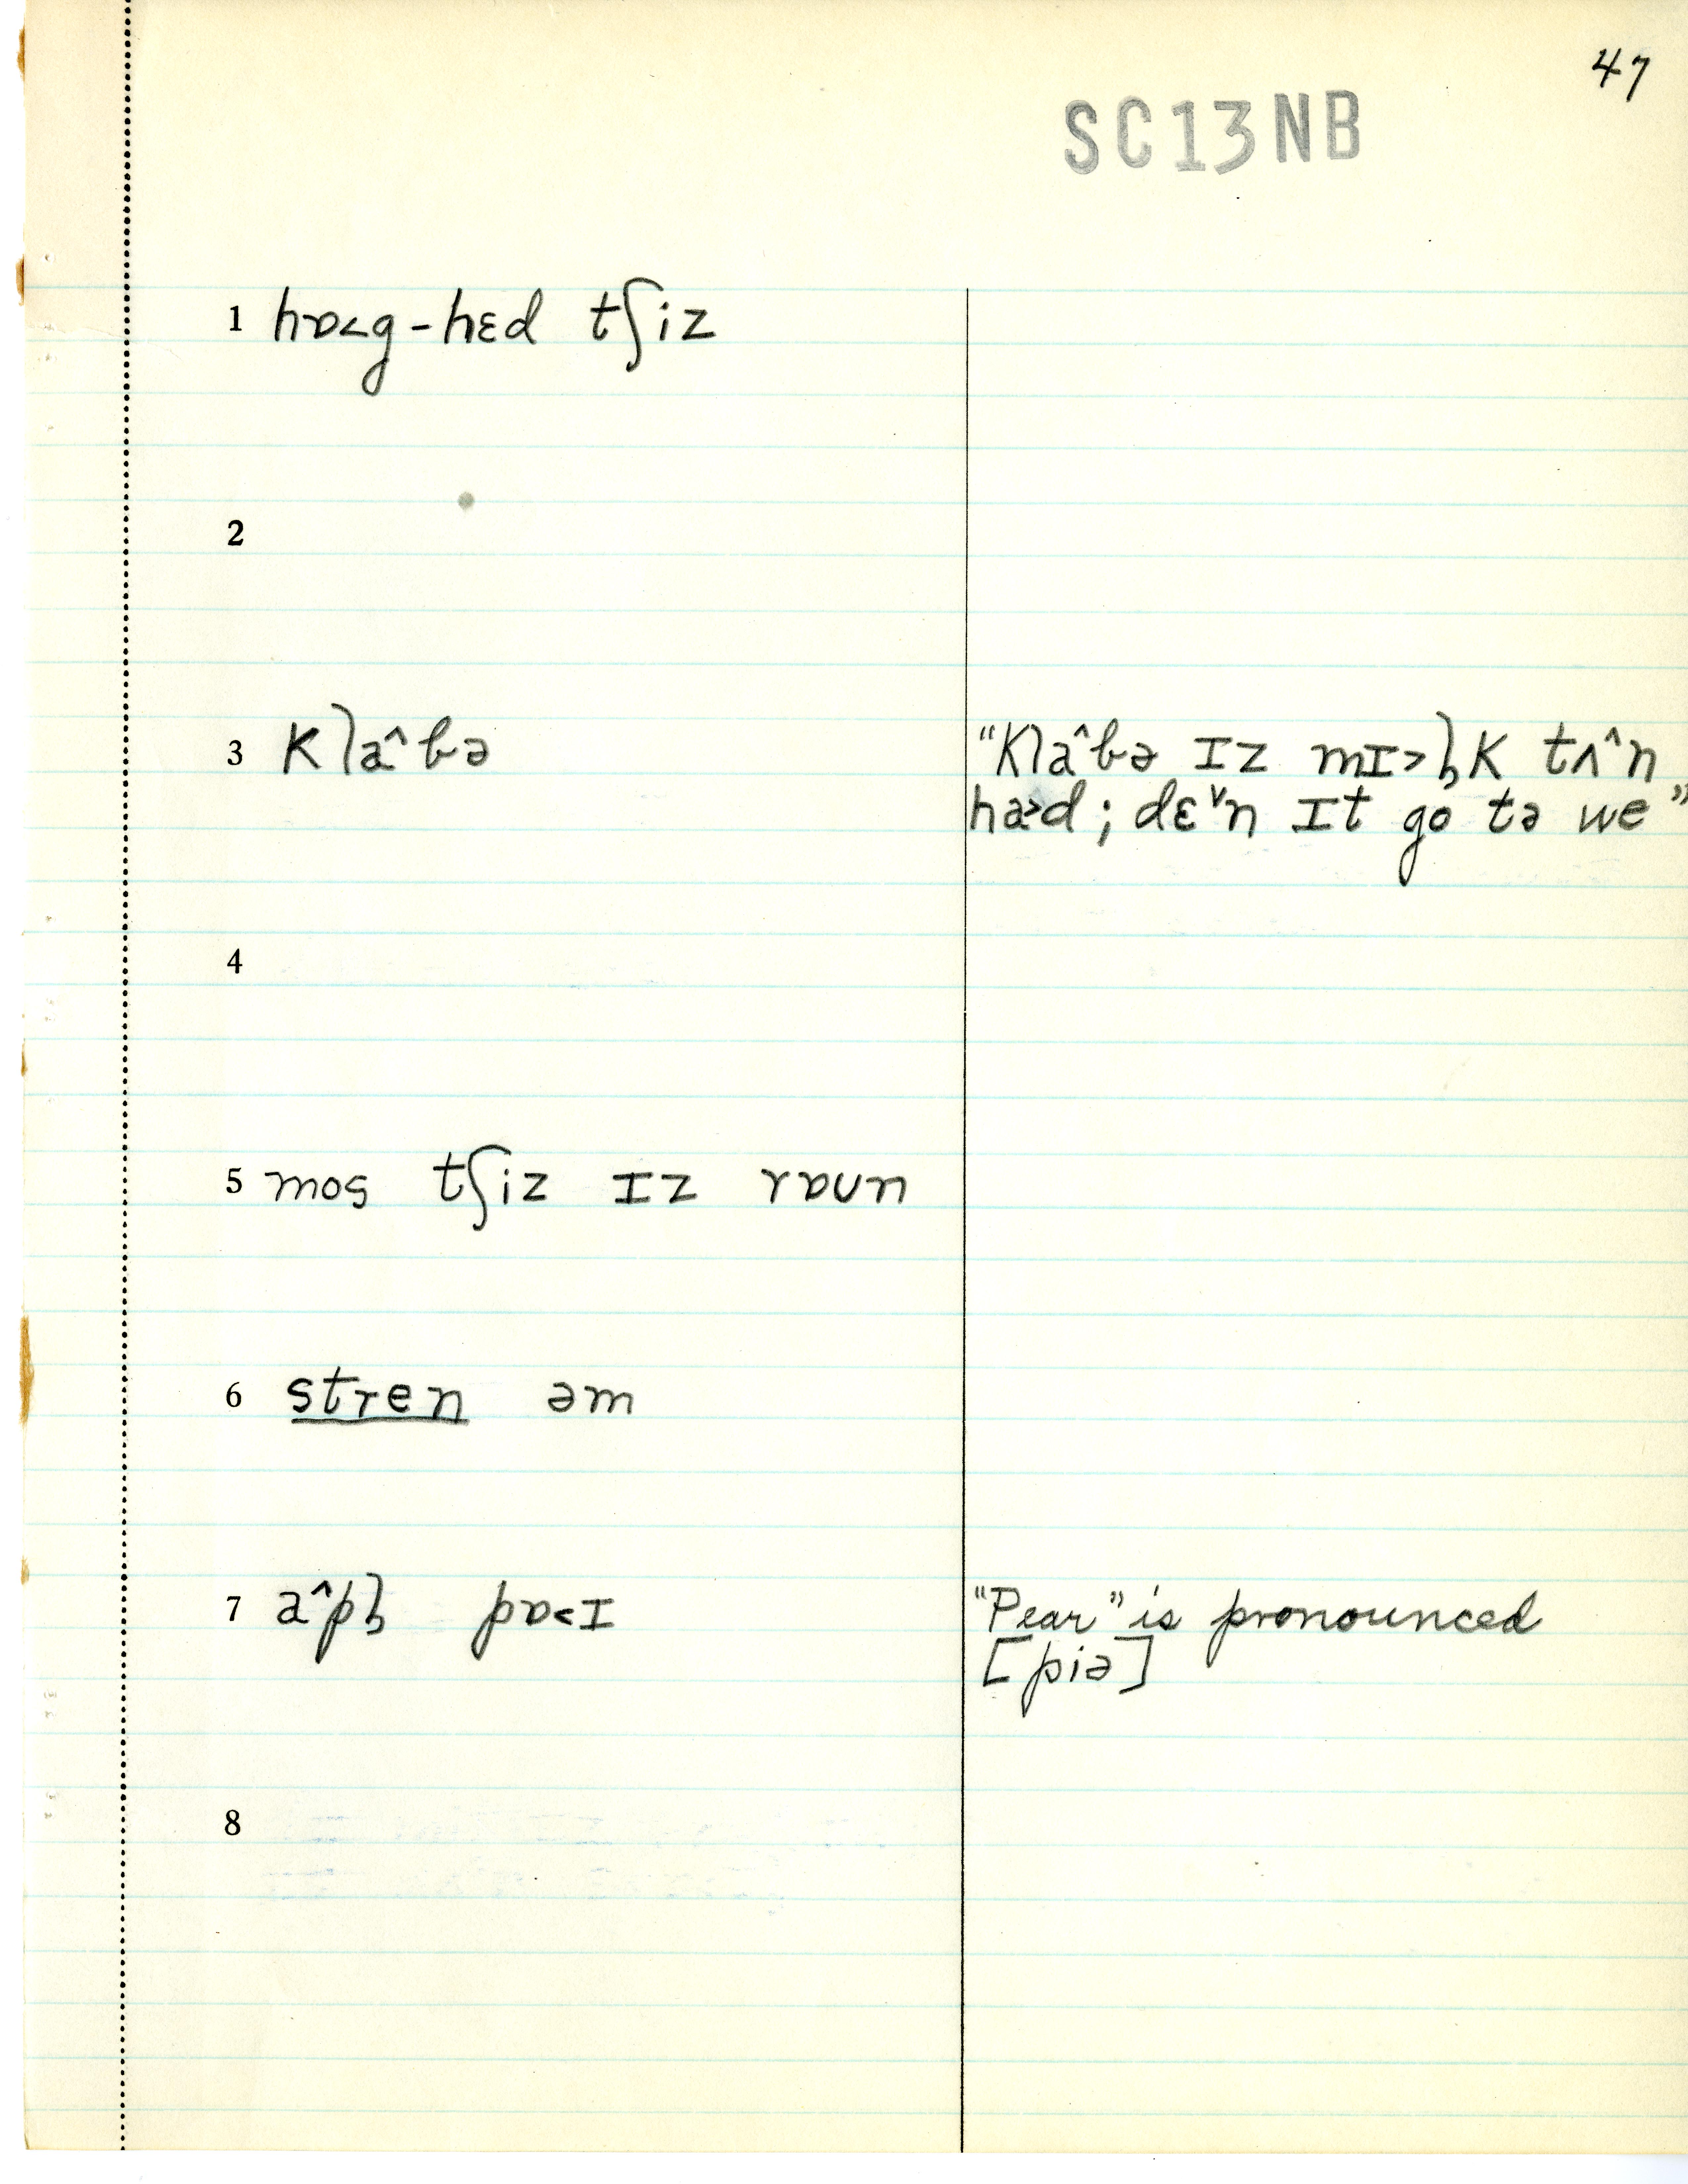 47
SC13NB
1 hɒ˂g-hɛd tʃiz
2
3 Klaˆbə
"Klaˆbə ɪz mɪ˃l̩K tʌˆn
ha˃d; dɛˇn ɪt go tə we"
4
5 mos tʃiz ɪz rɒun
6 stren əm
7 aˆpl̩ pɒ˂ɪ
"Pear" is pronounced
[piə]
8